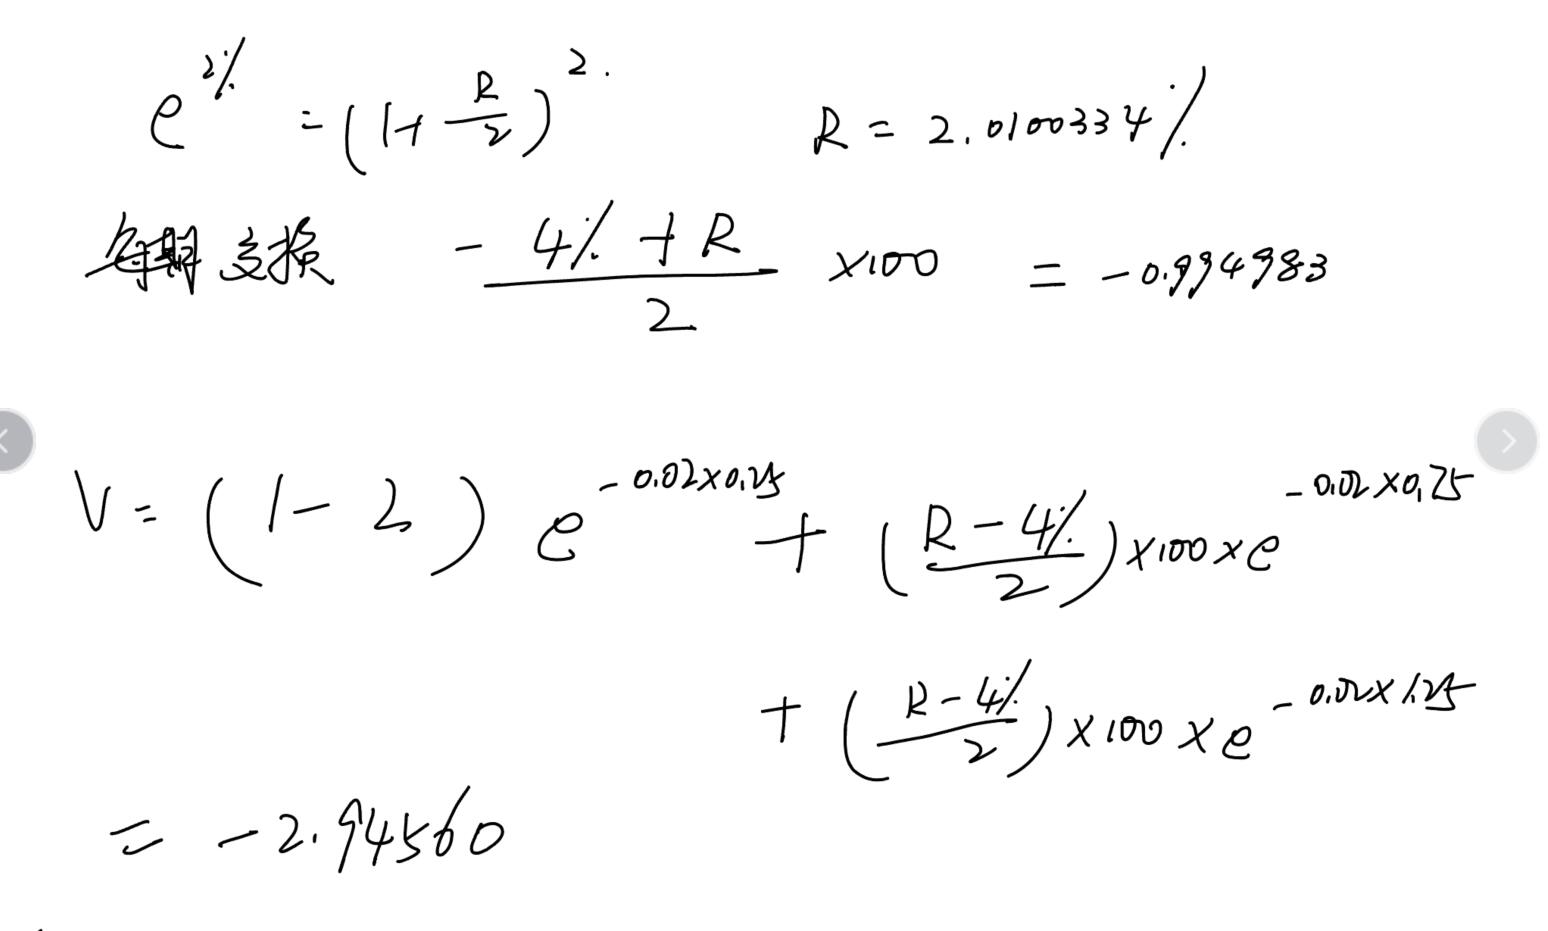 e^{2%} = (1+ R/2)^2. R = 2.0100334%
每期交换 (-4% + R)/2 ×100 = -0.994983
V = (1-2) e^{-0.02×0.25} + ((R-4%)/2)×100×e^{-0.02×0.75}
+ ((R-4%)/2)×100×e^{-0.02×1.25}
= -2.94560